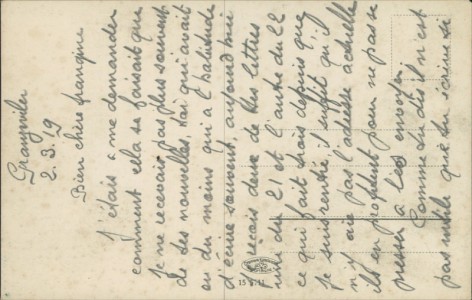 Granvillier
2.3.19
Bien chère frangine
J'étais à me demander
comment cela se faisait que
je ne recevais pas plus souvent
de tes nouvelles, toi qui avait
ou du moins qui a l'habitude
d'écrire souvent, aujourd'hui
je reçois deux de tes lettres
une du 21 et l'autre du 22
ce qui fait trois depuis que
je suis rentré, il suffit qu'il
n'y aie pas l'adresse actuelle
ils en profitent pour ne pas se
presser à les envoyer
Comme tu dis il n'est
pas utile que tu écrives si